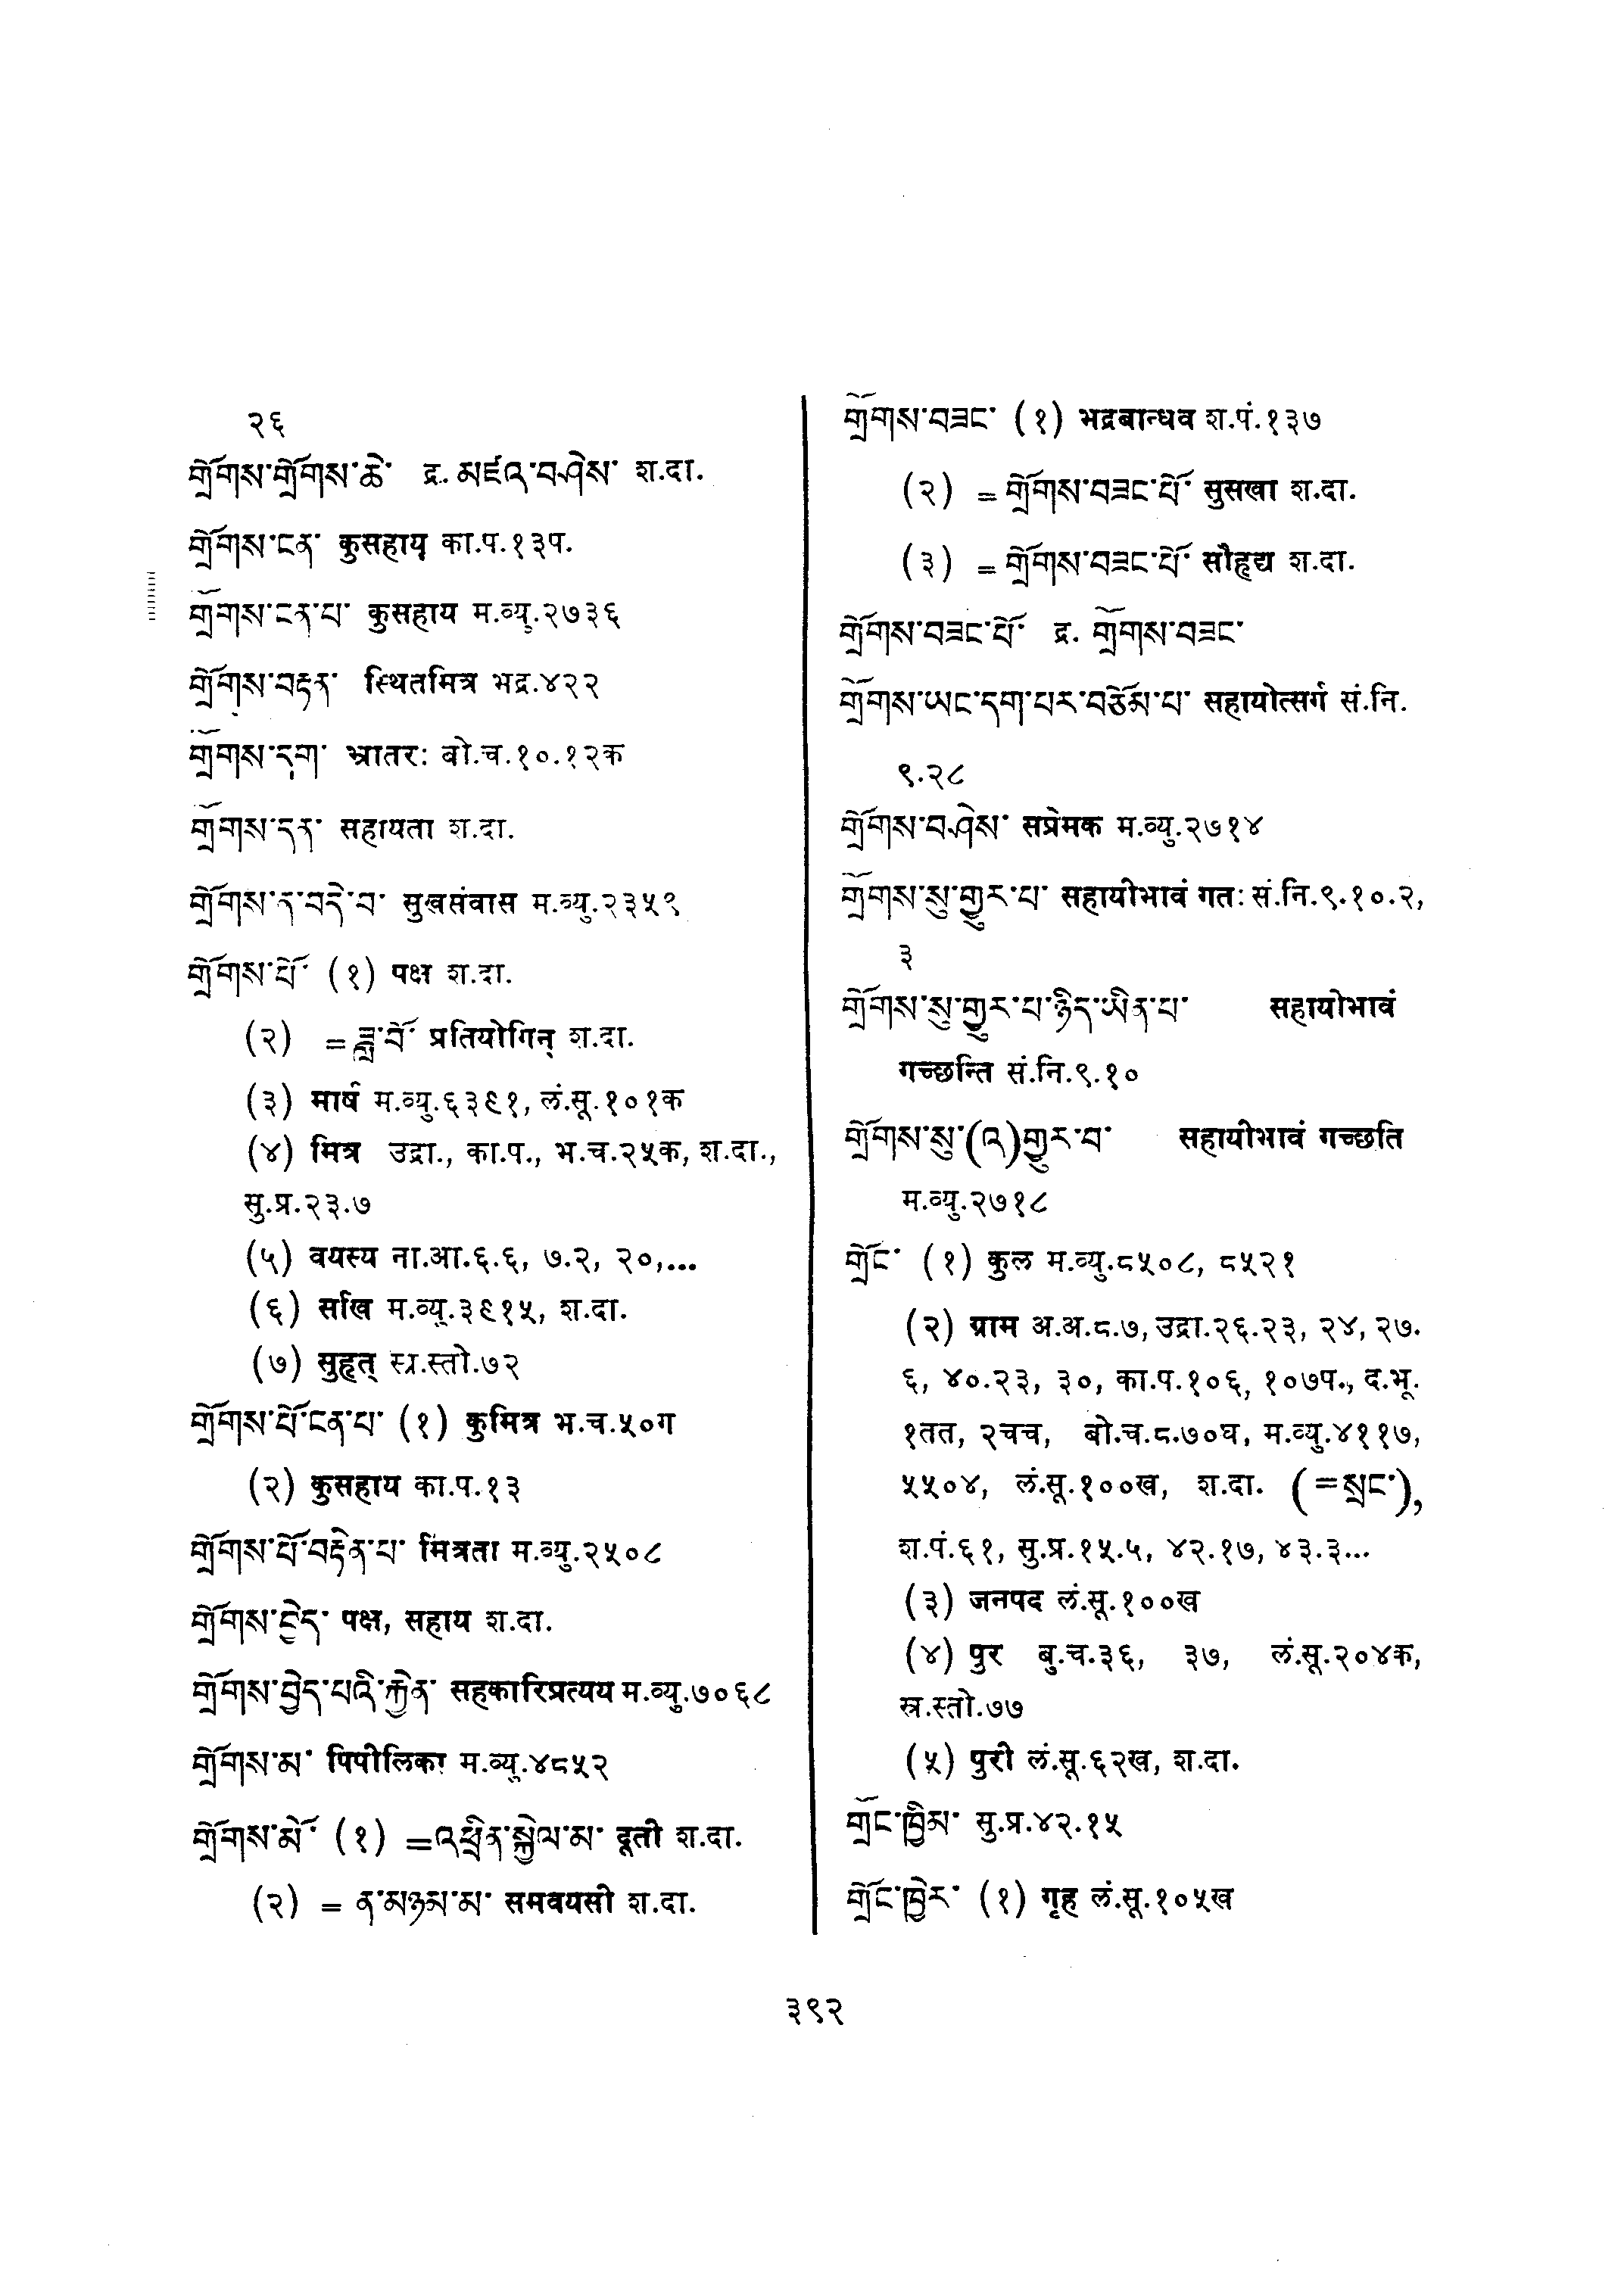 २६
གྲོགས་གྲོགས་ཆེ་ द्र. མཛའ་བཤེས་ श.दा.
གྲོགས་ངན་ कुसहाय का.प.१३प.
གྲོགས་ངན་པ་ कुसहाय म.व्यु.२७३६
གྲོགས་བརྟན་ स्थितमित्र भद्र.४२२
གྲོགས་དག་ भ्रातरः बो.च.१०.१२क
གྲོགས་དན་ सहायता श.दा.
གྲོགས་ན་བདེ་བ་ सुखसंवास म.व्यु.२३५९
གྲོགས་པོ་ (१) पक्ष श.दा.
(२) =ཟླ་བོ་ प्रतियोगिन् श.दा.
(३) मार्ष म.व्यु.६३९१, लं.सू.१०१क
(४) मित्र उद्रा., का.प., भ.च.२५क, श.दा.,
सु.प्र.२३.७
(५) वयस्य ना.आ.६.६, ७.२, २०,...
(६) सखि म.व्यु.३९१५, श.दा.
(७) सुहृत् स्र.स्तो.७२
གྲོགས་པོ་ངན་པ་ (१) कुमित्र भ.च.५०ग
(२) कुसहाय का.प.१३
གྲོགས་པོ་བརྟེན་པ་ मित्रता म.व्यु.२५०८
གྲོགས་བྱེད་ पक्ष, सहाय श.दा.
གྲོགས་བྱེད་པའི་རྐྱེན་ सहकारिप्रत्यय म.व्यु.७०६८
གྲོགས་མ་ पिपीलिका म.व्यु.४८५२
གྲོགས་མོ་ (१) =འཕྲིན་སྐྱེལ་མ་ दूती श.दा.
(२) = ན་མཉམ་མ་ समवयसी श.दा.
གྲོགས་བཟང་ (१) भद्रबान्धव श.पं.१३७
(२) =གྲོགས་བཟང་པོ་ सुसखा श.दा.
(३) =གྲོགས་བཟང་པོ་ सौहृद्य श.दा.
གྲོགས་བཟང་པོ་ द्र. གྲོགས་བཟང་
གྲོགས་ཡང་དག་པར་བཙོམ་པ་ सहायोत्सर्ग सं.नि.
९.२८
གྲོགས་བཤེས་ सप्रेमक म.व्यु.२७१४
གྲོགས་སུ་གྱུར་པ་ सहायीभावं गतः सं.नि.९.१०.२,
३
གྲོགས་སུ་གྱུར་པ་ཉིད་ཡིན་པ་ सहायीभावं
गच्छन्ति सं.नि.९.१०
གྲོགས་སུ་(འ)གྱུར་བ་ सहायीभावं गच्छति
म.व्यु.२७१८
གྲོང་ (१) कुल म.व्यु.८५०८, ८५२१
(२) ग्राम अ.अ.८.७, उद्रा.२६.२३, २४, २७.
६, ४०.२३, ३०, का.प.१०६, १०७प., द.भू.
१तत, २चच, बो.च.८.७०घ, म.व्यु.४११७,
५५०४, लं.सू.१००ख, श.दा. (=སྲང་),
श.पं.६१, सु.प्र.१५.५, ४२.१७, ४३.३...
(३) जनपद लं.सू.१००ख
(४) पुर बु.च.३६, ३७, लं.सू.२०४क,
स्र.स्तो.७७
(५) पुरी लं.सू.६२ख, श.दा.
གྲོང་ཁྱིམ་ सु.प्र.४२.१५
གྲོང་ཁྱེར་ (१) गृह लं.सू.१०५ख
३९२